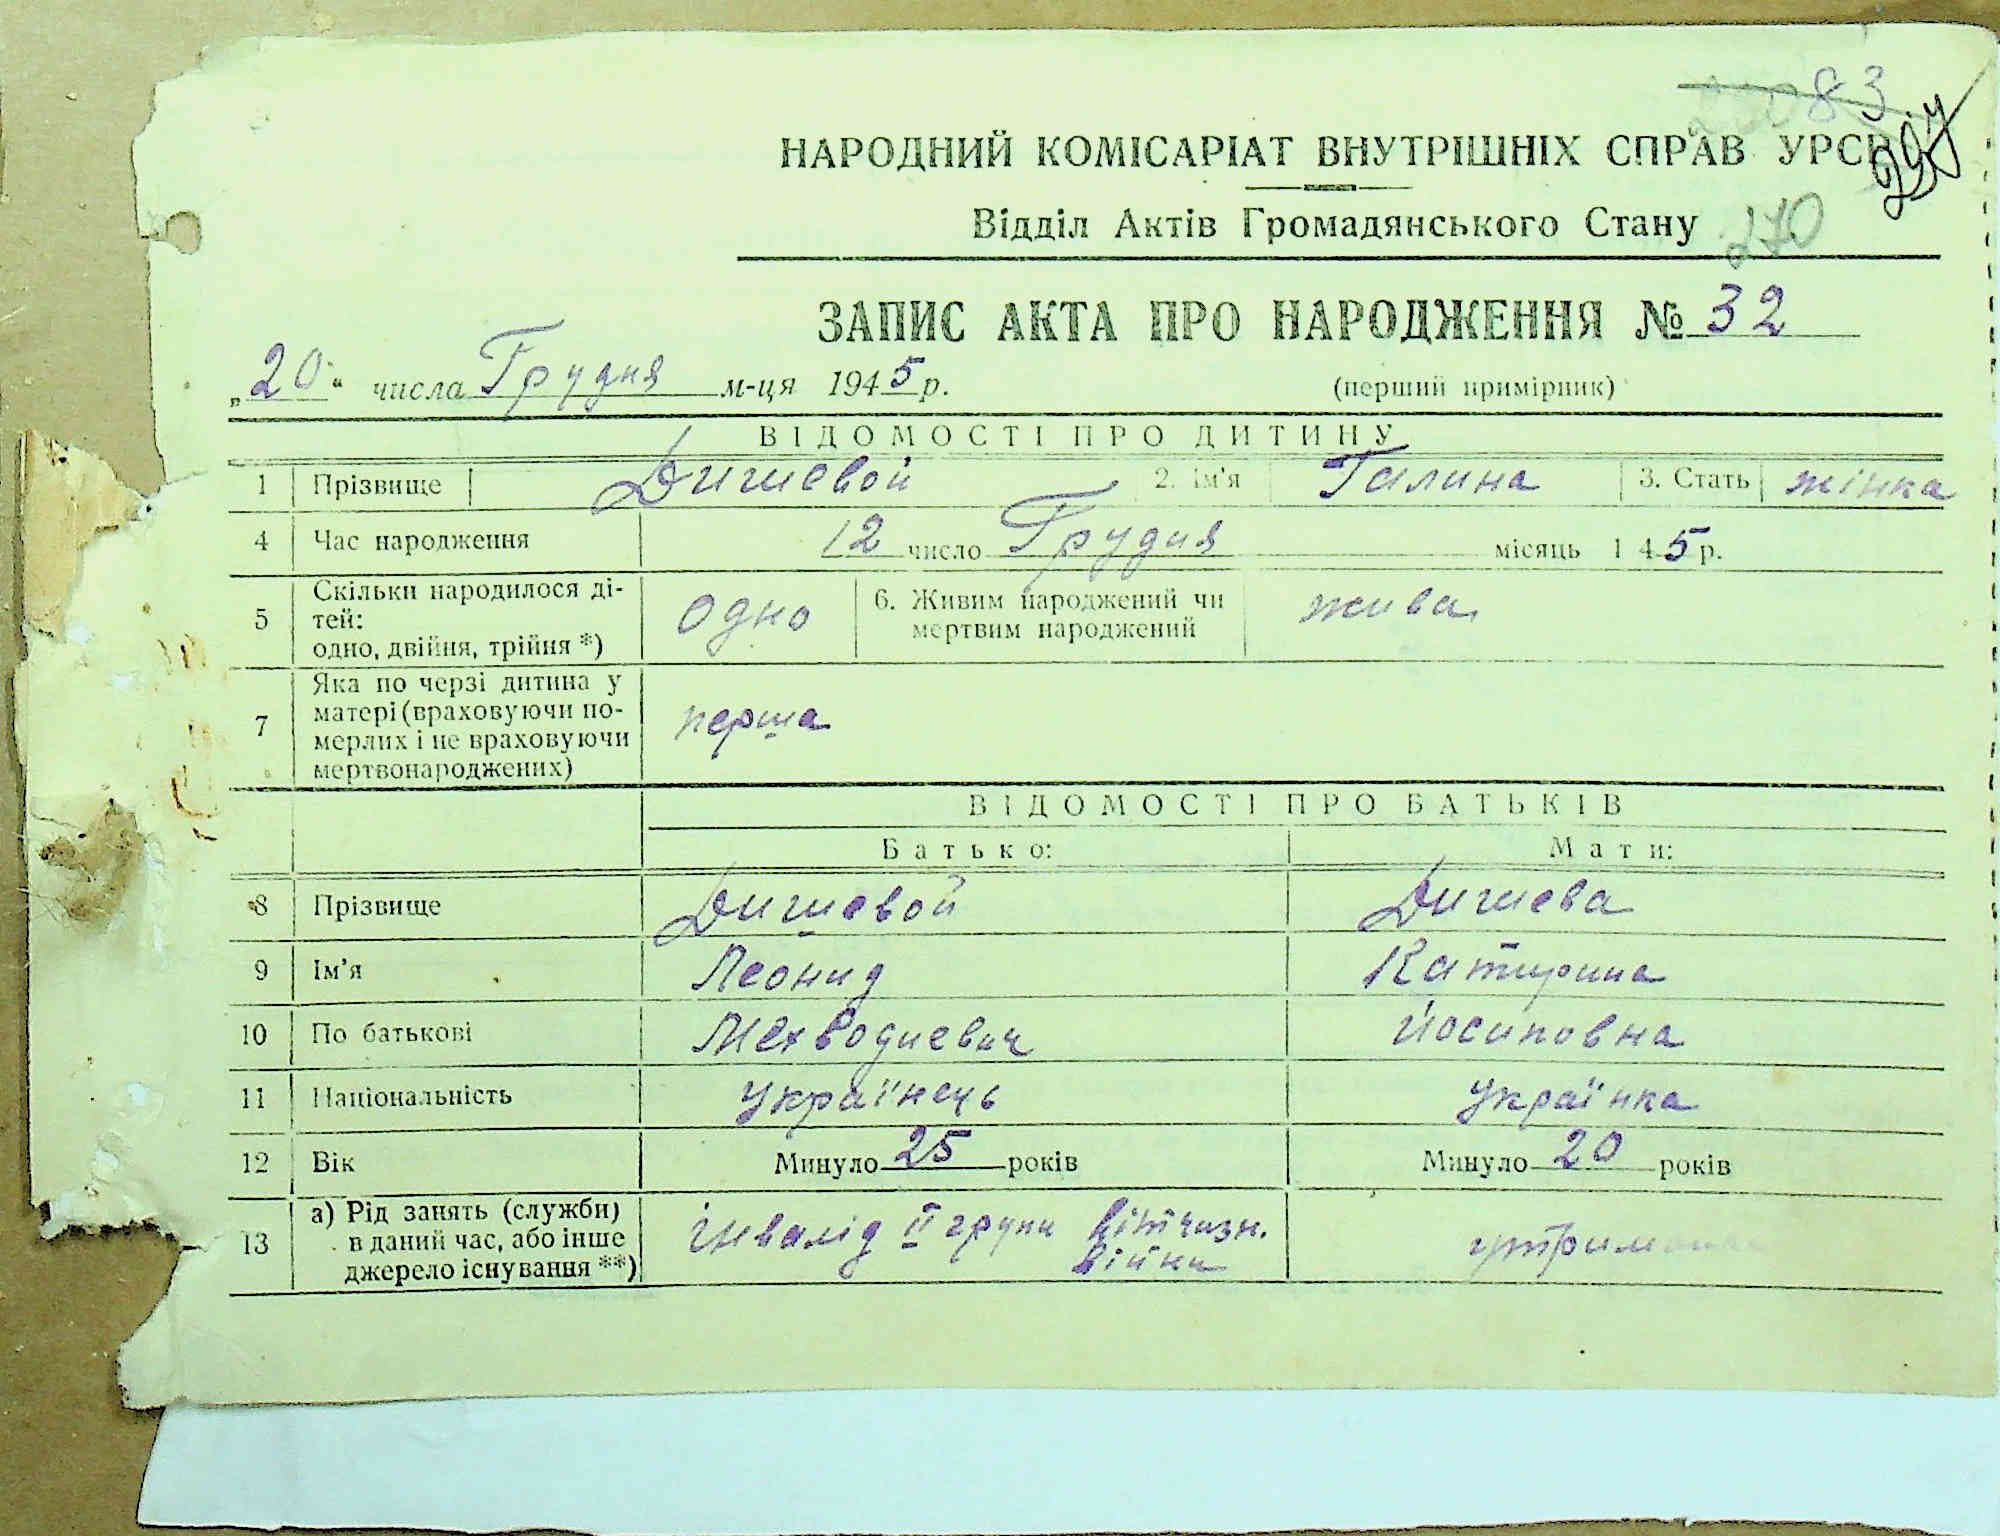 83
297
НАРОДНИЙ КОМІСАРІАТ ВНУТРІШНІХ СПРАВ УРСР
Відділ Актів Громадянського Стану
270
ЗАПИС АКТА ПРО НАРОДЖЕННЯ № 32
„20“ числа Грудня м-ця 1945 р. (перший примірник)
ВІДОМОСТІ ПРО ДИТИНУ
1 Прізвище Дишевой 2. Ім'я Галина 3. Стать жінка
4 Час народження 12 число Грудня місяць 1 45 р.
5 Скільки народилося ді-
тей:
одно, двійня, трійня *) Одно 6. Живим народжений чи
мертвим народжений жива
7 Яка по черзі дитина у
матері (враховуючи по-
мерлих і не враховуючи
мертвонароджених) перша
ВІДОМОСТІ ПРО БАТЬКІВ
Батько: Мати:
8 Прізвище Дишевой Дишева
9 Ім'я Леонид Катирина
10 По батькові Мехводиевич Йосиповна
11 Національність Українець Українка
12 Вік Минуло 25 років Минуло 20 років
13 а) Рід занять (служби)
в даний час, або інше
джерело існування **) інвалід II групи Вітчизн.
війни